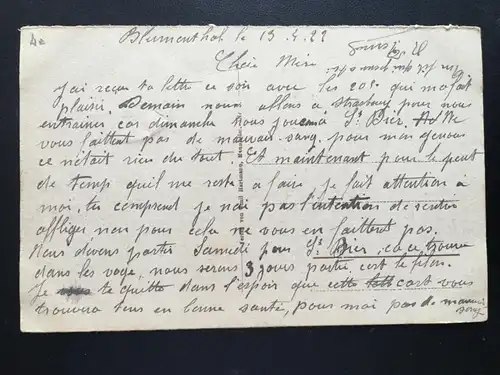 Blumenthal le 13.4.22
Chere Mère
J'ai reçue ta lettre ce soir avec les 20f. qui m'a fait
plaisir. Demain nous allons a Strasbourg pour nous
entrainer car dimanche nous jouons à St Dier,
vous faittent pas de mauvais sang, pour mon genou
ce nétait rien du tout. Et maintenant pour le peut
de temp qu'il me reste a faire je fait attention à
moi, tu comprend je n'ai pas l'intention de rentrer
affliger non pour cela ne vous en faittent pas.
Nous devons partir Samedi pour St Dier, ca ce trouve
dans les voge, nous serons 3 jours partie, cest le filon.
Je te quitte dans l'espoir que cette cart vous
trouvera tous en bonne santée, pour moi pas de mauvais
sang